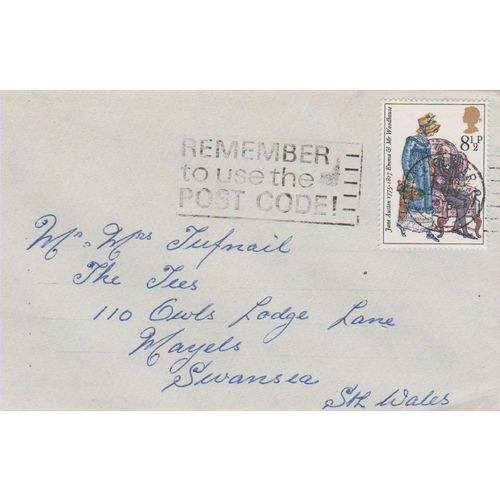 8½P
Jane Austen 1775-1817 Emma & Mr Woodhouse
REMEMBER
to use the
POST CODE!
Mr. Mrs Tufnail
The Tees
110 Owls Lodge Lane
Mayels
Swansea
Sth Wales